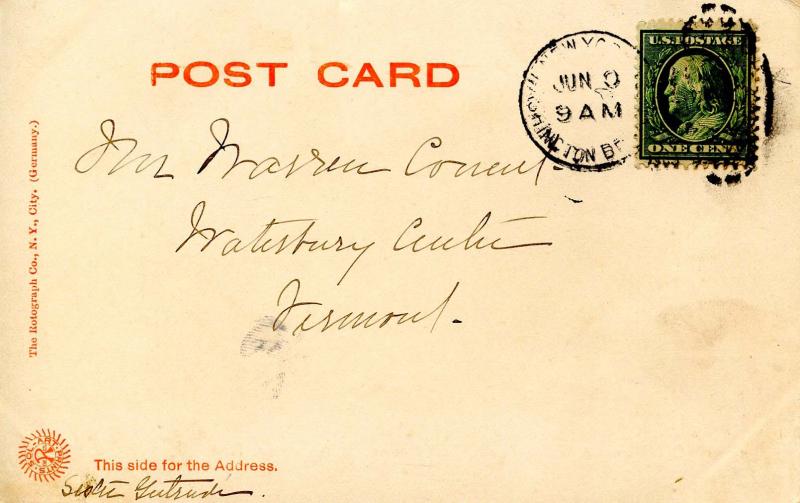 POST CARD
NEW YO
JUN 9
9 AM
U.S. POSTAGE
ONE CENT
Mr Warren Conent-
Waterbury Center
Vermont-
The Rotograph Co., N. Y., City. (Germany.)
This side for the Address.
Sister Gertrude.